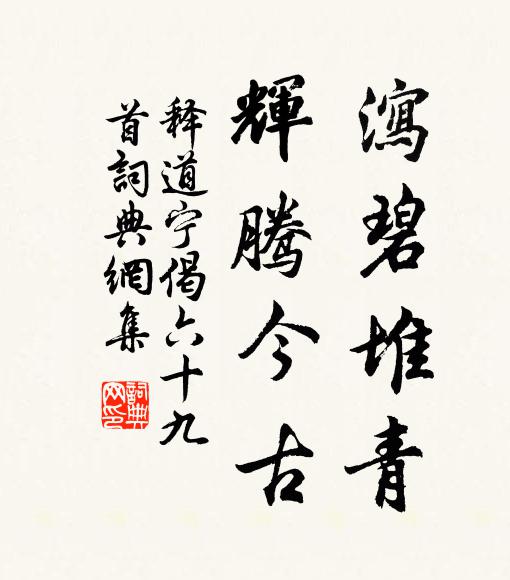 瀉碧堆青
輝騰今古
释道宁偈六十九
首詞典網集
詞典網印